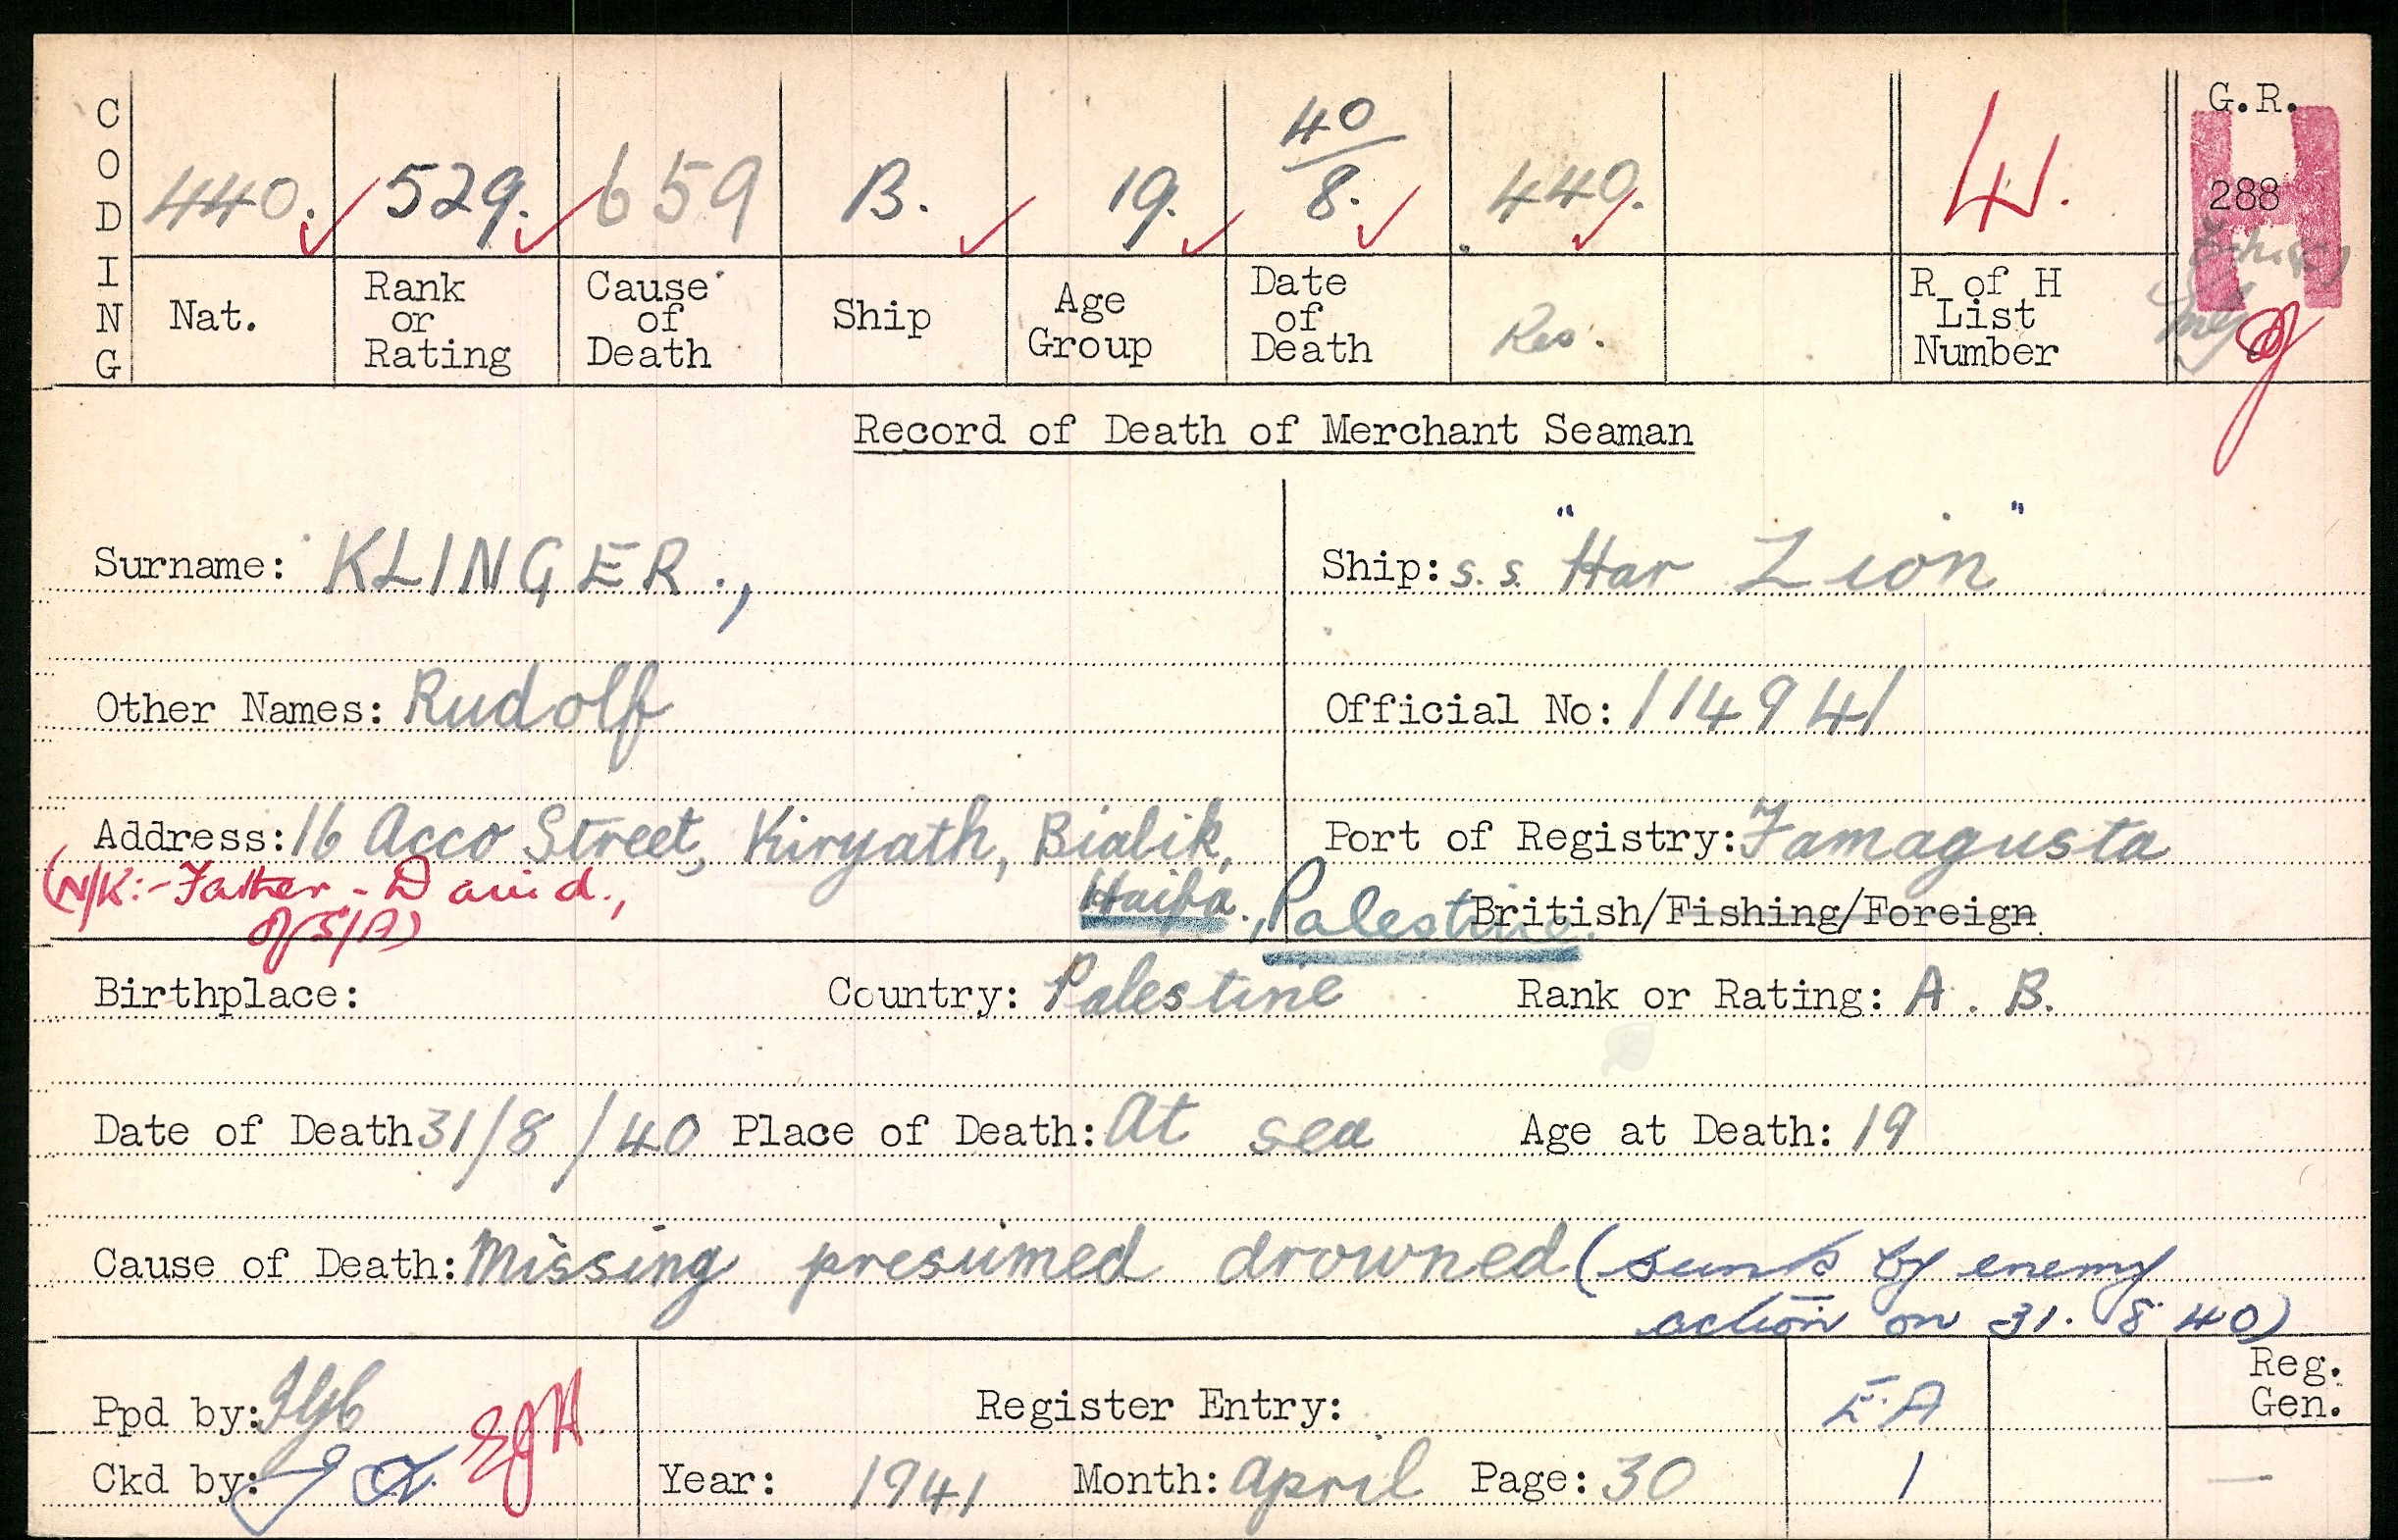 CODING
440. 529. 659 B. 19. 40/8. 440. 41. G.R. 288
Nat. Rank or Rating Cause of Death Ship Age Group Date of Death Res. R of H List Number
Record of Death of Merchant Seaman
Surname: KLINGER., Ship: s.s. "Har Zion"
Other Names: Rudolf Official No: 114941
Address: 16 Acco Street, Kiryath, Bialik, Port of Registry: Famagusta
(N/K:- Father - David., Haifa., Palestine. British/Fishing/Foreign
of S/A)
Birthplace: Country: Palestine Rank or Rating: A.B.
Date of Death 31/8/40 Place of Death: At sea Age at Death: 19
Cause of Death: Missing presumed drowned (sunk by enemy
action on 31.8.40)
Ppd by: EJH Register Entry: E.A Reg. Gen.
Ckd by: Year: 1941 Month: April Page: 30 1 —